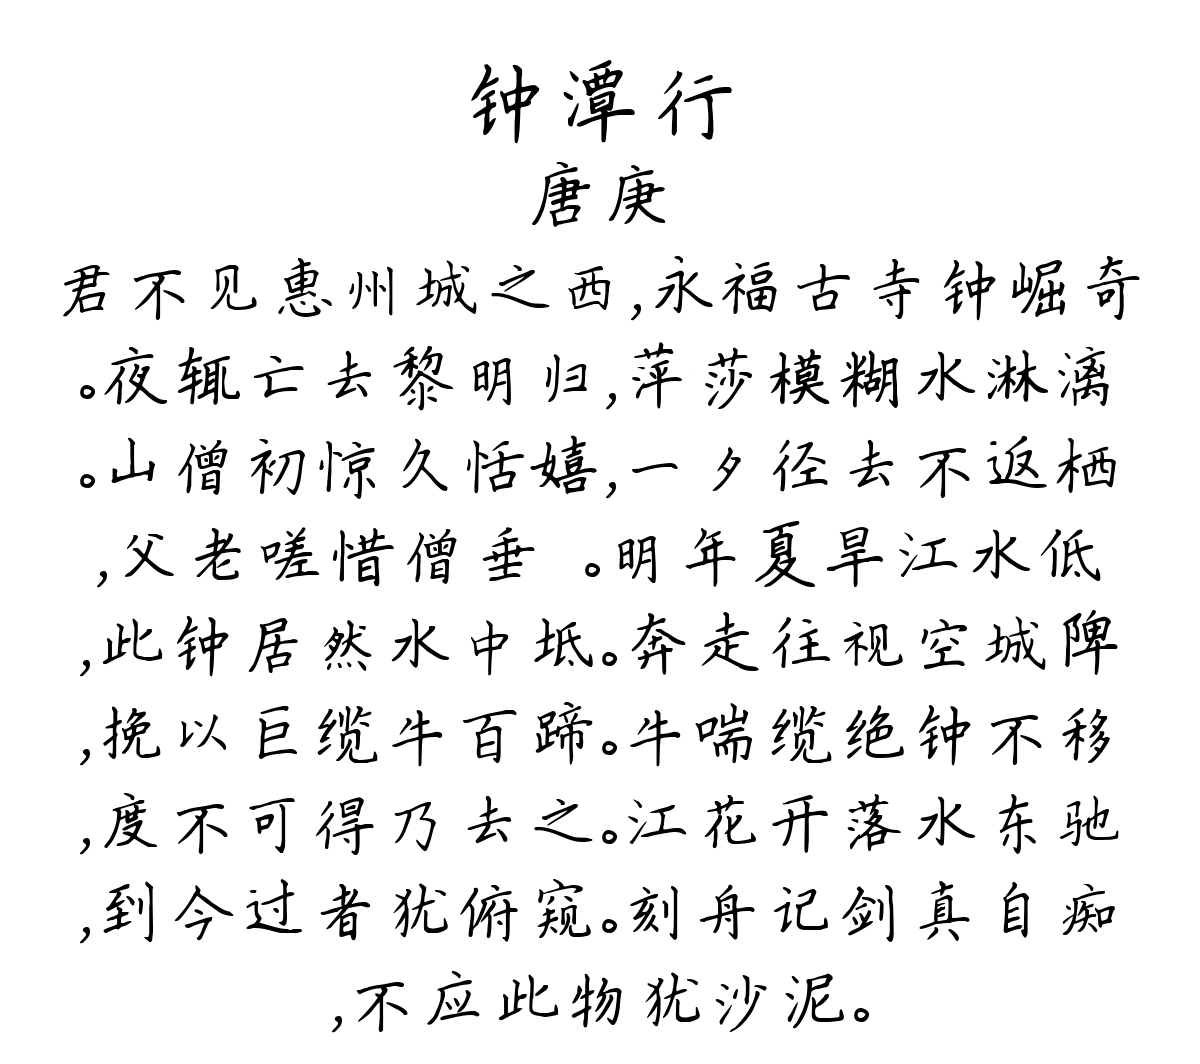 钟潭行
唐庚
君不见惠州城之西,永福古寺钟崛奇
。夜辄亡去黎明归,萍莎模糊水淋漓
。山僧初惊久恬嬉,一夕径去不返栖
,父老嗟惜僧垂 。明年夏旱江水低
,此钟居然水中坻。奔走往视空城陴
,挽以巨缆牛百蹄。牛喘缆绝钟不移
,度不可得乃去之。江花开落水东驰
,到今过者犹俯窥。刻舟记剑真自痴
,不应此物犹沙泥。